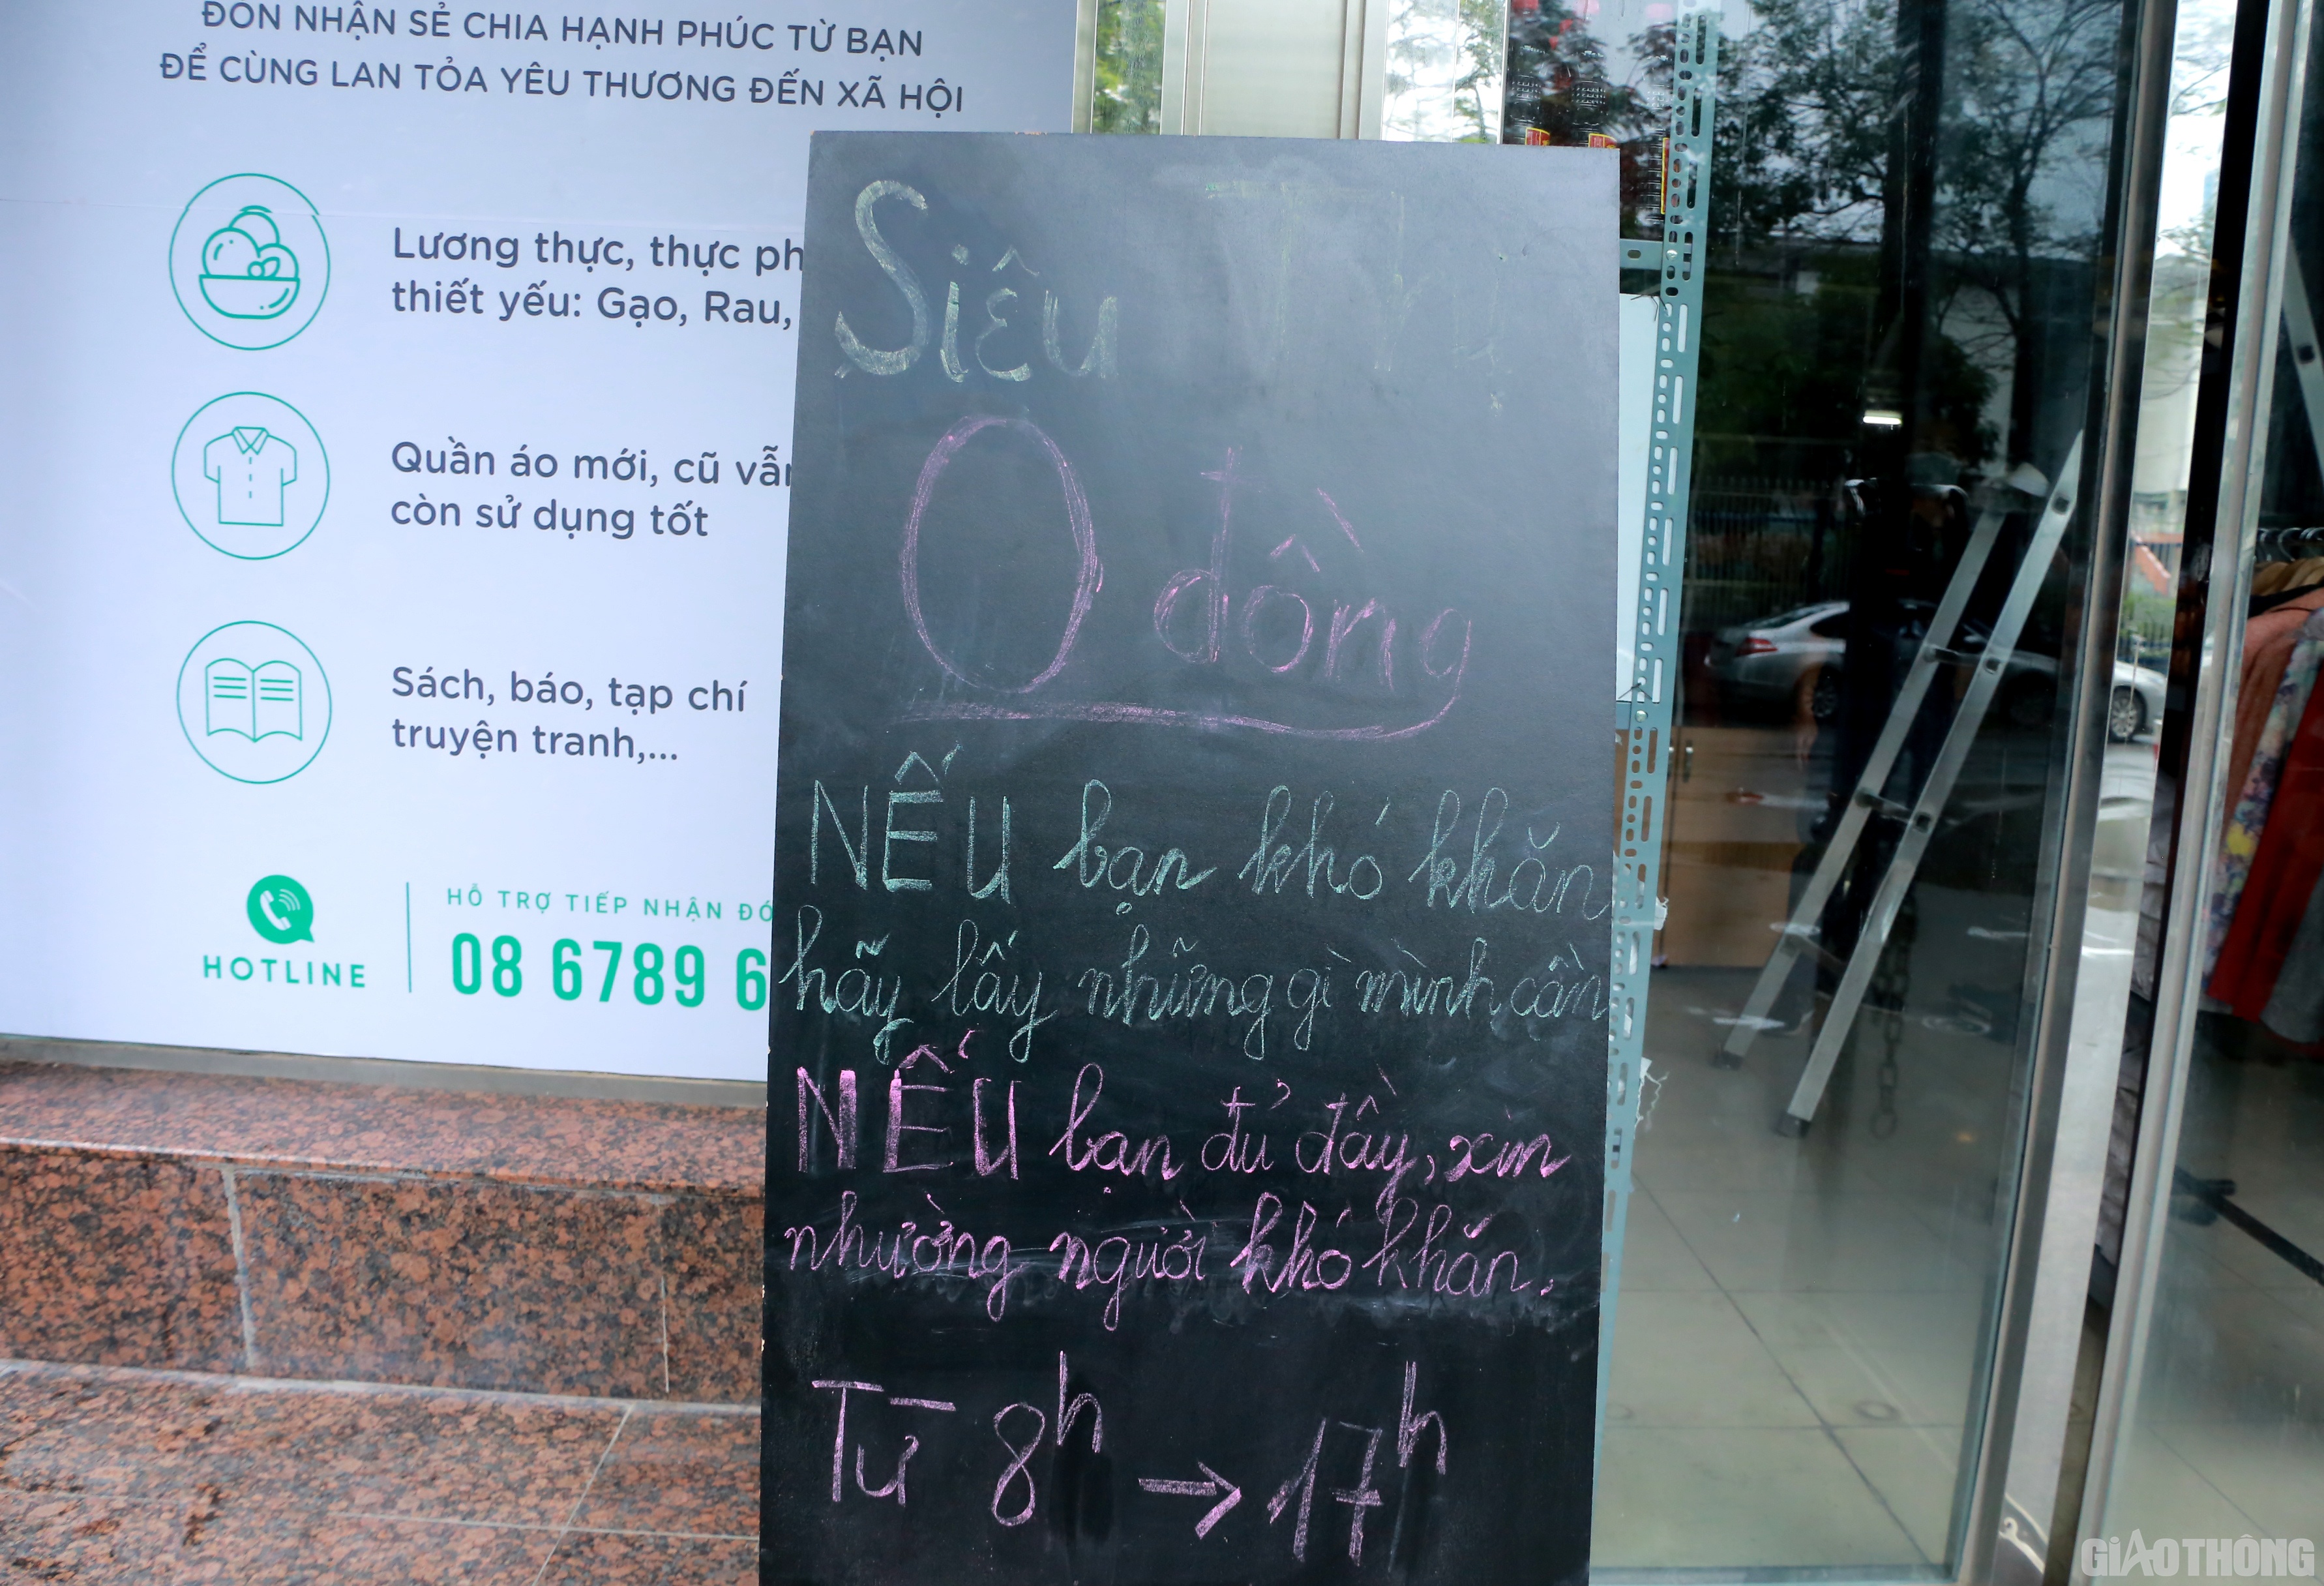 ĐÓN NHẬN SẺ CHIA HẠNH PHÚC TỪ BẠN
ĐỂ CÙNG LAN TỎA YÊU THƯƠNG ĐẾN XÃ HỘI
Lương thực, thực ph
thiết yếu: Gạo, Rau,
Quần áo mới, cũ vẫn
còn sử dụng tốt
Sách, báo, tạp chí
truyện tranh,...
HOTLINE
HỖ TRỢ TIẾP NHẬN ĐÓ
08 6789 6
Siêu Thị
0 đồng
NẾU bạn khó khăn
hãy lấy những gì mình cần
NẾU bạn đủ đầy, xin
nhường người khó khăn.
Từ 8h → 17h
GIAOTHÔNG